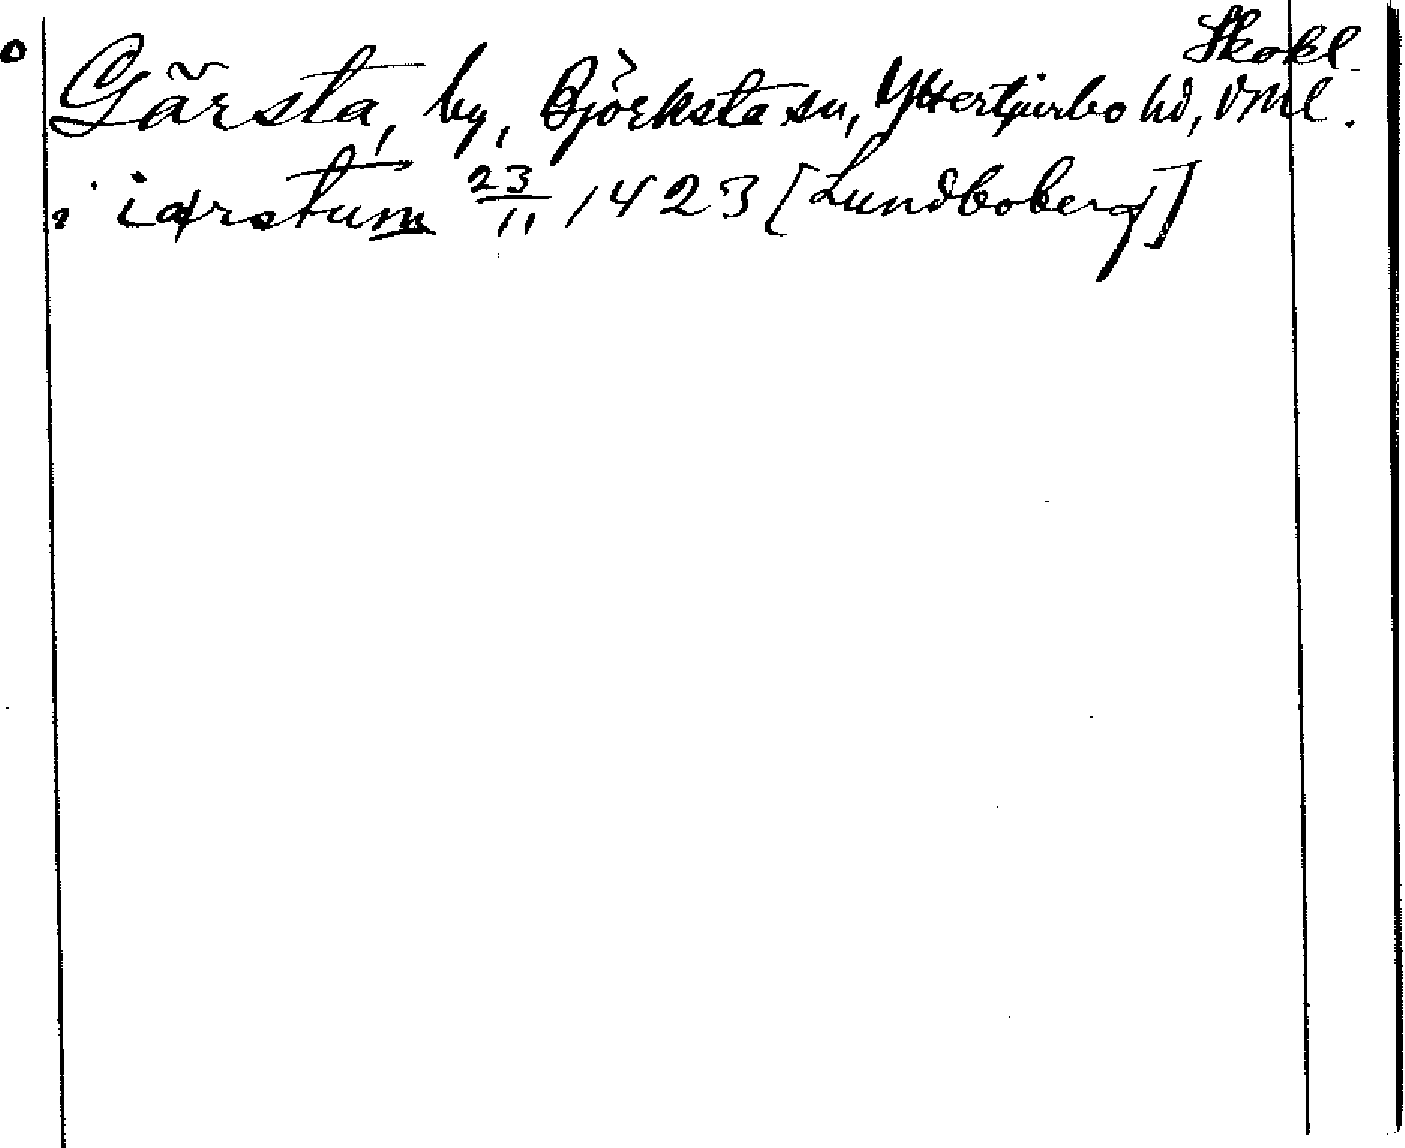 Skokl.
Gärsta, by, Björksta sn, Yttertjurbo hd, Vml.
i iærstum 23/11 1423 [Lundboberg]